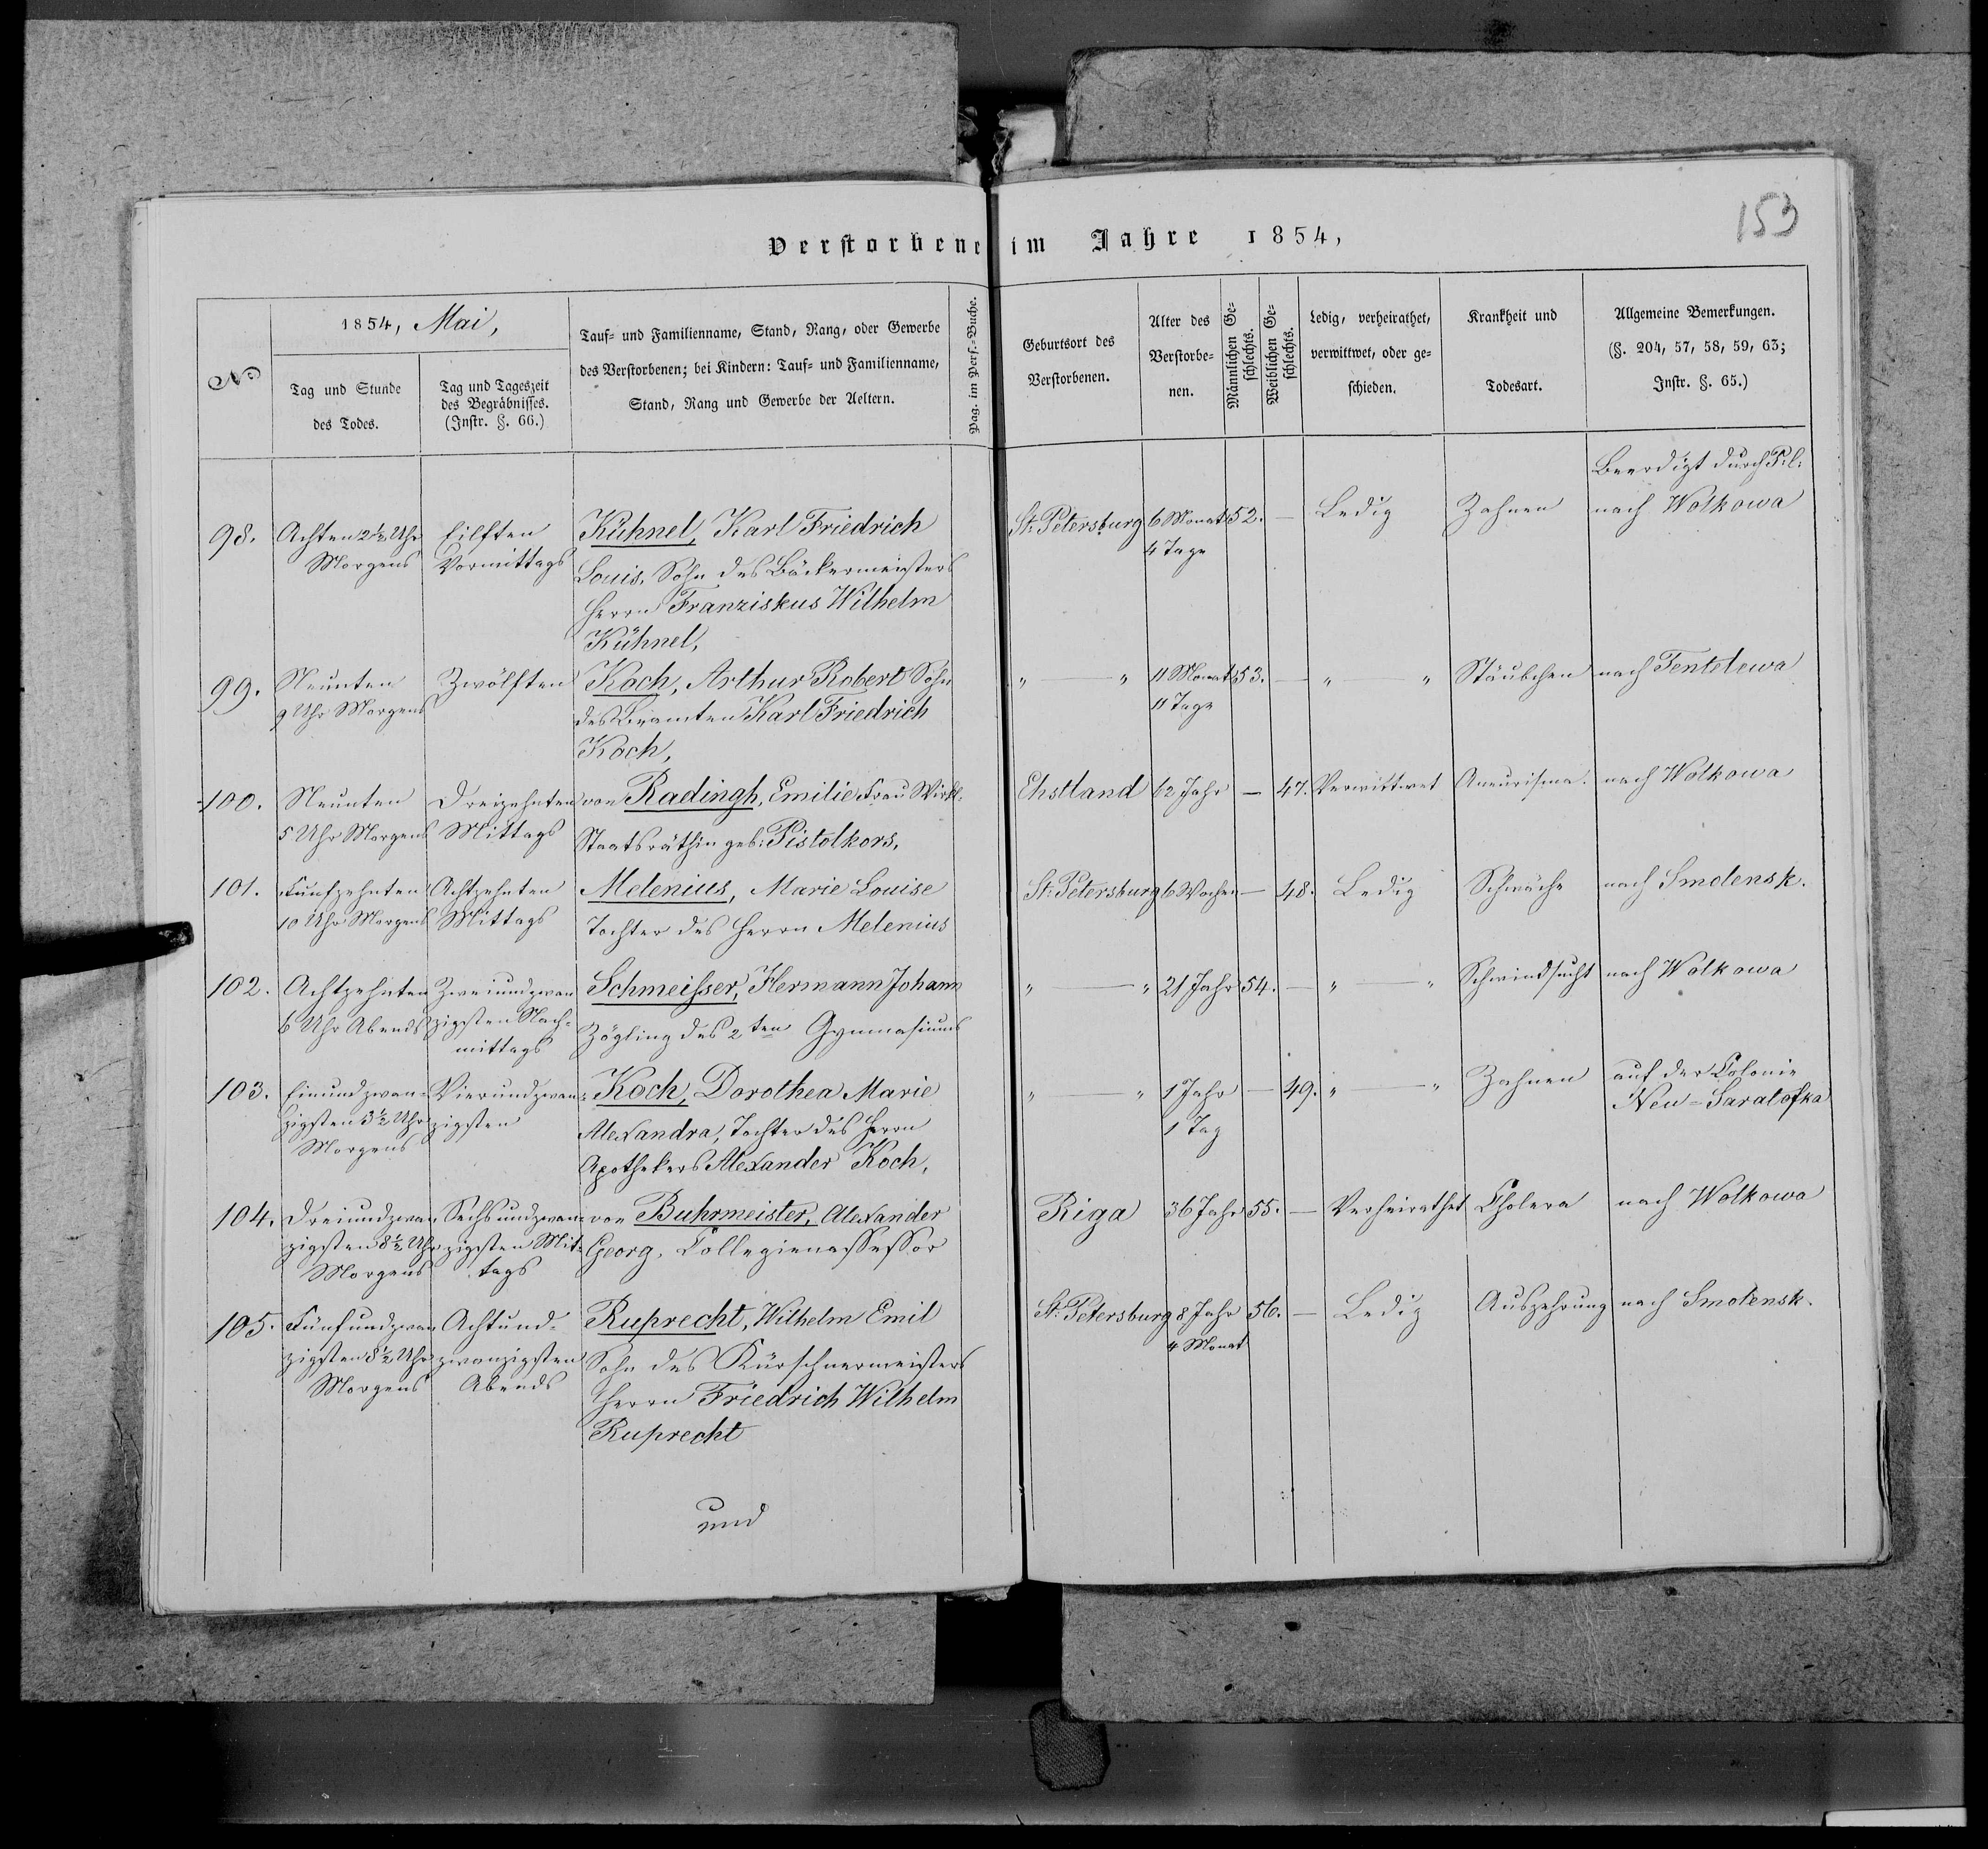 153
Verstorbene im Jahre 1854,
№
1854, Mai,
Tag und Stunde
des Todes.
Tag und Tageszeit
des Begräbnisses.
(Instr. §. 66.)
Tauf- und Familienname, Stand, Rang, oder Gewerbe
des Verstorbenen; bei Kindern: Tauf- und Familienname,
Stand, Rang und Gewerbe der Aeltern.
Pag. im Pers.-Buche.
Geburtsort des
Verstorbenen.
Alter des
Verstorbe-
nen.
Männlichen Ge-
schlechts.
Weiblichen Ge-
schlechts.
Ledig, verheirathet,
verwittwet, oder ge-
schieden.
Krankheit und
Todesart.
Allgemeine Bemerkungen.
(§. 204, 57, 58, 59, 63;
Instr. §. 65.)
98.
Achten 2½ Uhr
Morgens
Eilften
Vormittags
Kühnel, Karl Friedrich
Louis, Sohn des Bäckermeisters
Herrn Franziskus Wilhelm
Kühnel,
St. Petersburg
6 Monat
4 Tage
52.
—
Ledig
Zahnen
Beerdigt durch P. l:
nach Wolkowa
99.
Neunten
9 Uhr Morgens
Zwölften
Koch, Arthur Robert Sohn
des Beamten Karl Friedrich
Koch,
" — "
11 Monat
11 Tage
53.
—
" — "
Stäubchen
nach Tentelewa
100.
Neunten
5 Uhr Morgens
Dreizehnten
Mittags
von Radingh, Emilie Frau Wirkl.
Staatsräthin geb: Pistolkors,
Ehstland
62 Jahr
—
47.
Verwittwet
Aneurisma.
nach Wolkowa
101.
Fünfzehnten
10 Uhr Morgens
Achtzehnten
Mittags
Melenius, Marie Louise
Tochter des Herrn Melenius
St. Petersburg
6 Wochen
—
48.
Ledig
Schwäche
nach Smolensk.
102.
Achtzehnten
6 Uhr Abends
Zweiundzwan
zigsten Nach-
mittags
Schmeisser, Hermann Johann
Zögling des 2ten Gymnasiums
" — "
21 Jahr
54.
—
" — "
Schwindsucht
nach Wolkowa
103.
Einundzwan-
zigsten 3½ Uhr
Morgens
Vierundzwan-
zigsten
Koch, Dorothea Marie
Alexandra, Tochter des Herrn
Apothekers Alexander Koch,
" — "
1 Jahr
1 Tag
—
49.
" — "
Zahnen
auf der Colonie
Neu-Saratofka
104.
Dreiundzwan
zigsten 8½ Uhr
Morgens
Sechsundzwan-
zigsten Mit-
tags
von Buhrmeister, Alexander
Georg, Collegienassessor
Riga
36 Jahr
55.
—
Verheirathet
Cholera
nach Wolkowa
105.
Fünfundzwan
zigsten 8½ Uhr
Morgens
Achtund-
zwanzigsten
Abends
Ruprecht, Wilhelm Emil
Sohn des Kürschnermeisters
Herrn Friedrich Wilhelm
Ruprecht
St. Petersburg
8 Jahr
4 Monat
56.
—
Ledig
Auszehrung
nach Smolensk.
und